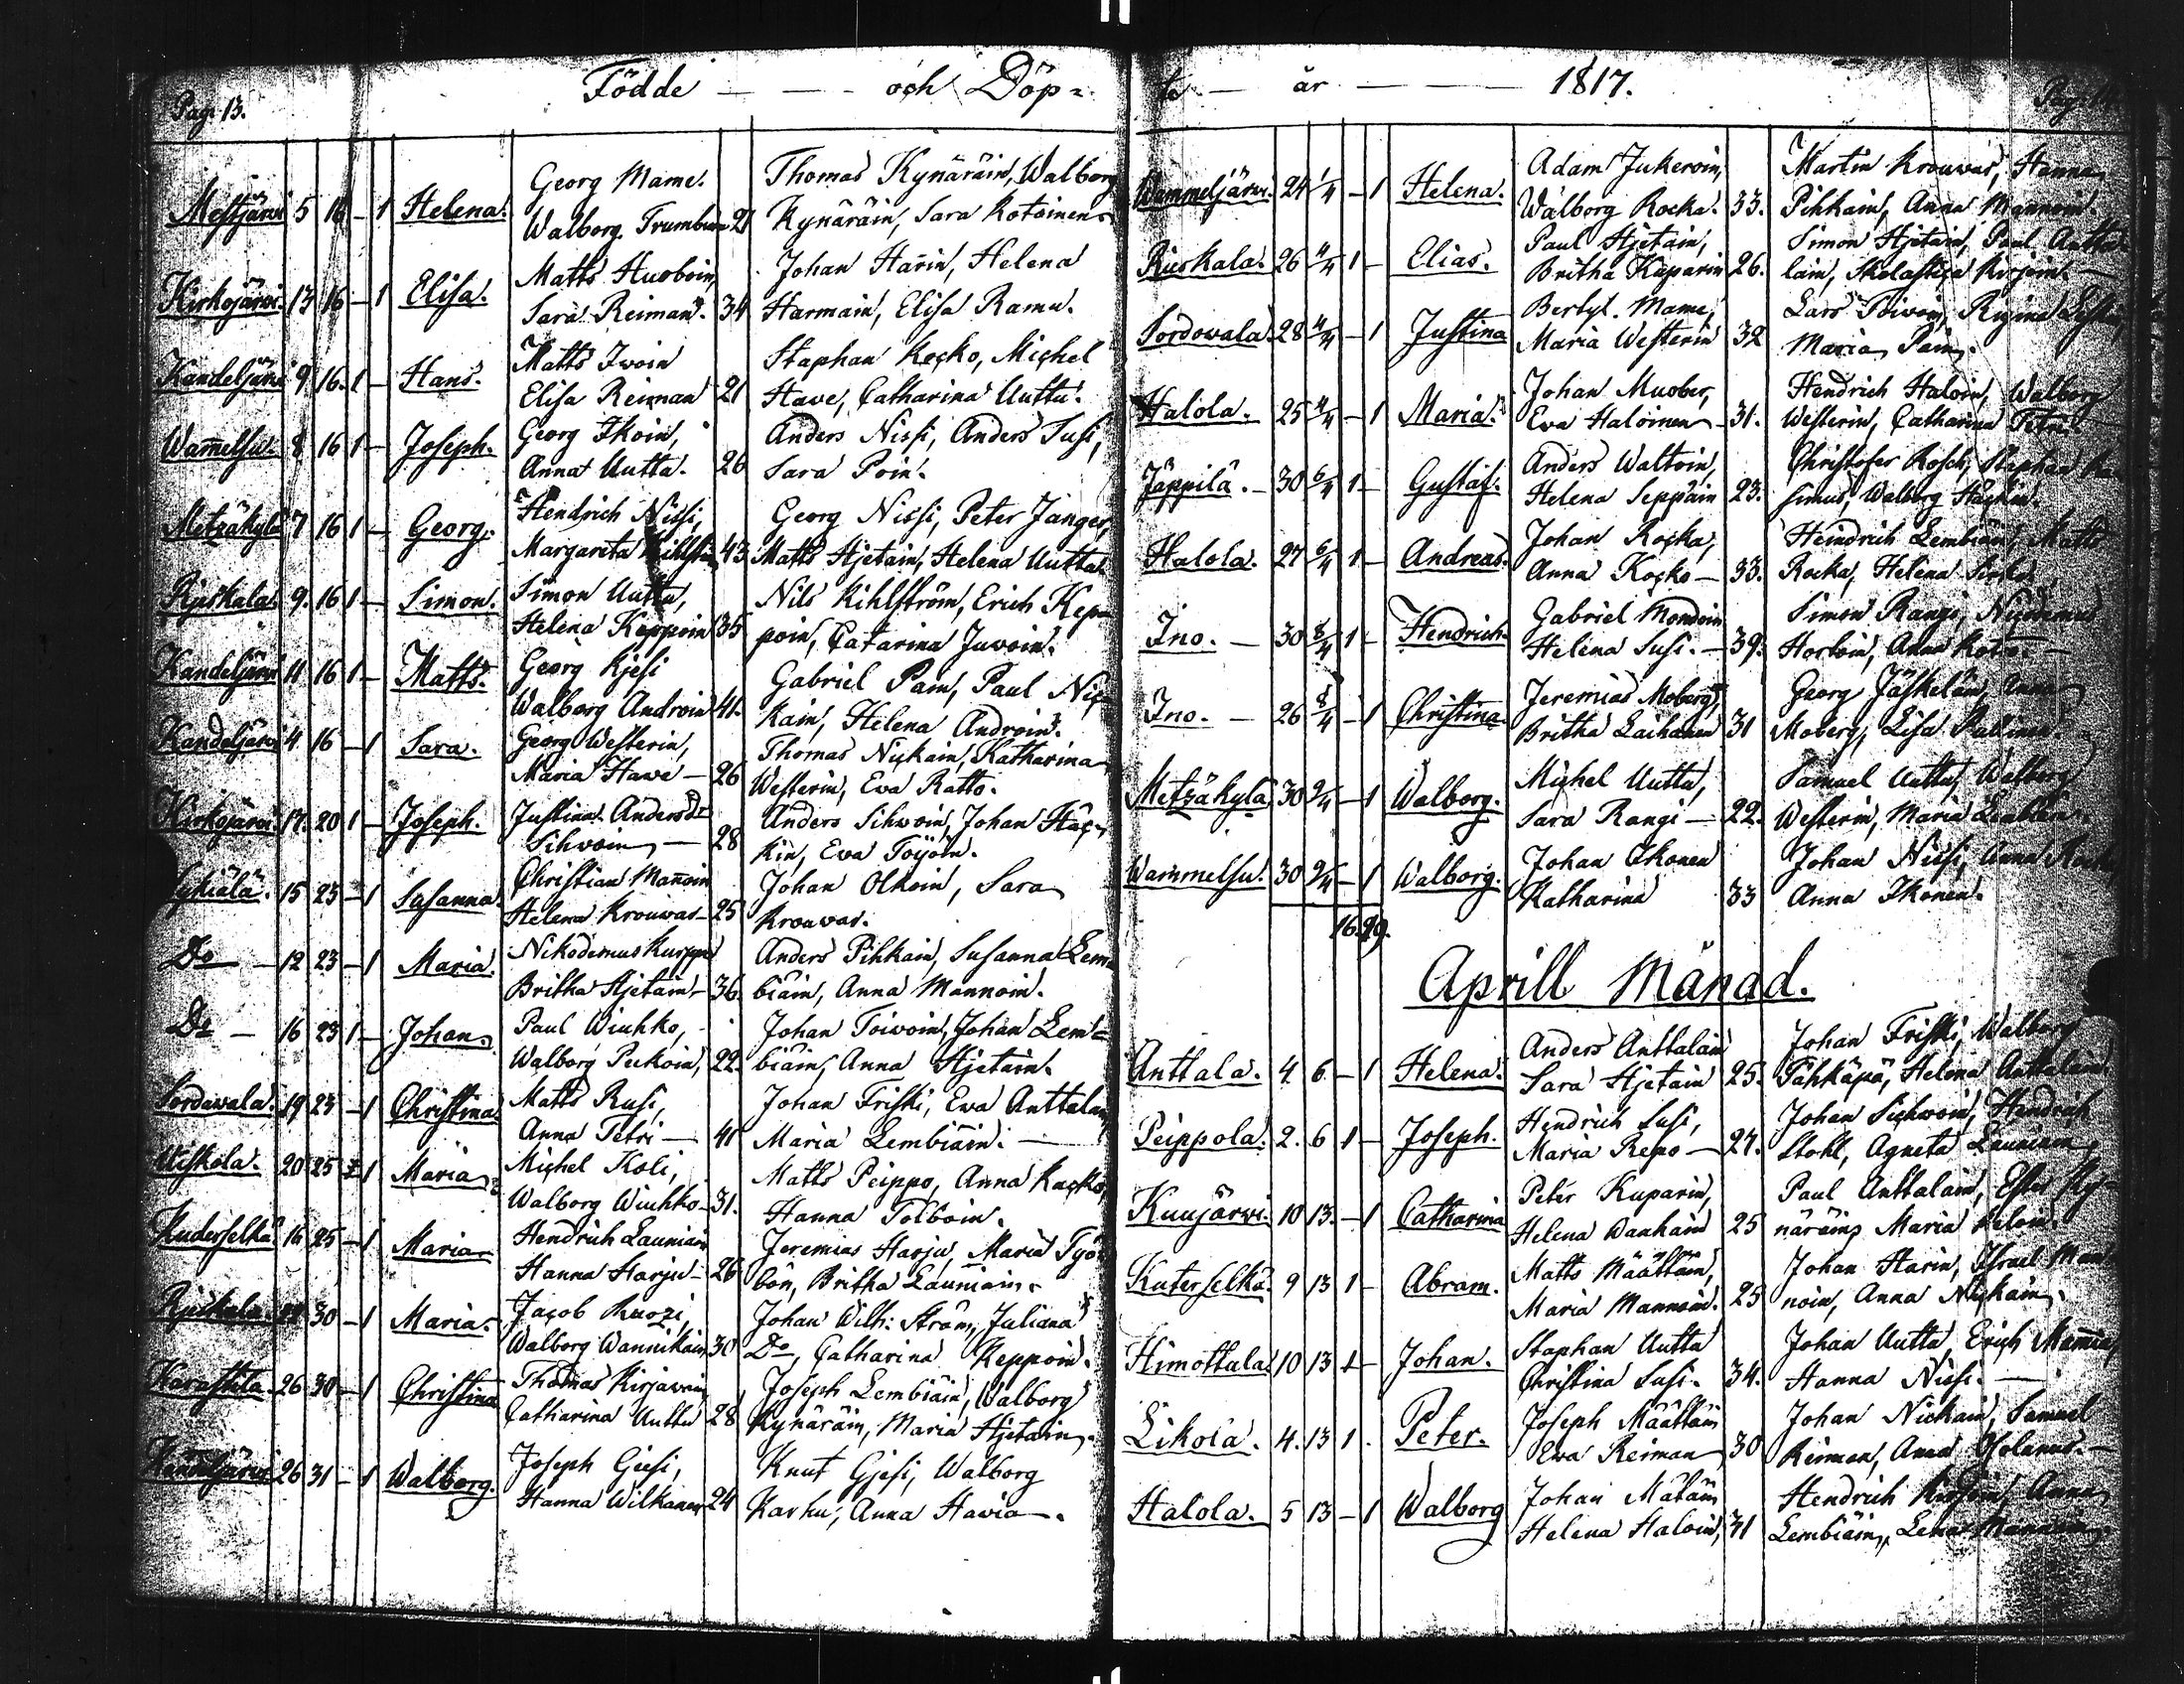 Pag. 13.
Födde — — och Döp=
Georg Mame. Thomas Kynäräin, Walborg
Mestjärvi 5 16 – 1 Helena. Walborg 21 Kynäräin, Sara Kotoinen
Matts Huoboin, Johan Harin, Helena
Kirkojärvi. 13 16 – 1 Elisa. Sara Reiman. 34 Harmain, Elisa Ramu.
Matts Iwoin Staphan Kecko, Michel
Kandeljärvi 9. 16. 1 – Hans. Elisa Reiman 21 Have, Catharina Uuttu.
Georg Ikoin, Anders Nissi, Anders Susi,
Wam̄elsu. 8 16 1 – Joseph. Anna Uutta. 26 Sara Poin.
Hendrich Nissi, Georg Nissi, Peter Janger,
Metzäkylä 7 16 1 – Georg. Margareta 43 Matts Hjetain, Helena Uutta
Simon Uutta, Nils Kihlström, Erich Kep
Rjeskala. 9. 16 1 – Simon. Helena Keppoin 35 poin, Catarina Juvoin.
Georg Kjesi Gabriel Pam, Paul Nic
Kandeljärvi 11 16 1 – Matts. Walborg Androin 41. kain, Helena Androin.
Georg Westerin, Thomas Nickain, Katharina
Kandeljärvi 4 16 – 1 Sara. Maria Hawe – 26 Westerin, Ewa Ratto.
Justina Anders Dr Anders Sihwoin, Johan Häc
Kirkojärvi. 17. 20 1 – Joseph. Sihwoin – 28 kin, Eva Töyöin.
Christian Man̄oin Johan Olkoin, Sara
Sykiälä. 15 23 – 1 Susanna. Helena Krouwas – 25 Krouwas.
Nikodemus Kurppa Anders Pihkain, Susanna Lem
Do — 12 23 – 1 Maria. Britha Hjetain – 36. biäin, Anna Mannoin.
Paul Winhko, Johan Toivoin, Johan Lem=
Do — 16 23 1 – Johan. Walborg Peckoin, 22. biäin, Anna Hjetain.
Matts Rusi, Johan Friski, Ewa Anttalain
Sordavala. 19 23 – 1 Christina. Anna Petri — 41 Maria Lembiäin. —
Michel Koli, Matts Peippo, Anna Kacko
Uiskola. 20 25 – 1 Maria. Walborg Winhko – 31. Hanna Tolboin.
Hendrich Launiain Jeremias Harju, Maria Työ
Kuderselkä 16 25 – 1 Maria. Hanna Harju – 26 bön, Britha Launiain.
Jacob Kuozi, Johan Wilh: Ström, Juliana
Rjeskala. 30 – 1 Maria. Walborg Wannikain 30 Do, Catharina Keppoin.
Thomas Kirjavain Joseph Lembiäin, Walborg
Karastila. 26 30 – 1 Christina Catharina Uuttu 28 Kynäräin, Maria Hjetain.
Joseph Giesi, Knut Gjesi, Walborg
Kanneljärvi 26 31 – 1 Walborg. Hanna Wilkanen 24 Karhu, Anna Havia.
te — år — 1817. Pag. 14
Adam Jukeroin, Martin Krouwas, Hanna
Wammeljärvi. 24 1/4 – 1 Helena. Walborg Rocka. 33. Pihkain, Anna Mannoin.
Paul Hjetain, Simon Hjetain, Paul Antta
Rieskala. 26 4/4 1 – Elias. Britha Kuparin 26. lain, Skolastica
Bertyl. Mame, Lars Toivoin, Regina
Sordowala 28 4/4 – 1 Justina Maria Westerin 32 Maria Pain.
Johan Muober, Hendrich Haloin, Walborg
Halola. 25 4/4 – 1 Maria. Eva Haloinen – 31. Westerin, Catharina Petri.
Anders Waltoin, Christofer Rosch, Stephan
Jäppilä. – 30 6/4 1 – Gustaf. Helena Seppäin 23. simus, Walborg Häckin.
Johan Rocka, Heindrich Lembiäin, Matts
Halola. 27 6/4 1 – Andreas. Anna Kocko — 33. Rocka, Helena
Gabriel Mondoin Simon Rangi, Nicodemus
Ino. — 30 8/4 1 – Hendrich. Helena Susi. – 39. Horloin, Anna
Jeremias Moberg, Georg Jäskeläin, Anna
Ino. — 26 8/4 – 1 Christina. Britha Laihanen 31 Moberg, Lisa Pallinen
Michel Uutta, Samuel Uutta, Walborg
Metzäkylä 30 9/4 – 1 Walborg. Sara Rangi — 22. Westerin, Maria
Johan Ikonen Johan Nissi, Anna
Wammelsu. 30 9/4 – 1 Walborg. Katharina 33 Anna Ikonen.
16. 29.
Aprill Månad.
Anders Anttalain Johan Friski, Walborg
Anttala. 4. 6 – 1 Helena. Sara Hjetain 25. Pähkäpä, Helena Anttalain.
Hendrich Susi, Johan Sichwoin, Hendrich
Peippola. 2. 6 1 – Joseph. Maria Repo — 27. Stohl, Agneta Launiain
Peter Kuparin, Paul Anttalain, Ester Ky-
Kuujärvi. 10 13. – 1 Catharina Helena Wanhain 25 näräin, Maria Heloin.
Matts Määttäin, Johan Harin, Israel Man
Kuterselkä. 9 13 1 – Abram. Maria Mannoin. 25 noin, Anna Nickain.
Staphan Uutta Johan Uutta, Erich
Himottula. 10 13 1 – Johan. Christina Susi. 34. Hanna Nissi. —
Joseph Määttäin Johan Nickain, Samuel
Likola. 4. 13 1 . Peter. Ewa Reiman 30 Reiman, Anna
Johan Mätäin Hendrich Anna
Halola. 5 13 – 1 Walborg Helena Haloin, 31 Lembiäin, Lena Mannoin